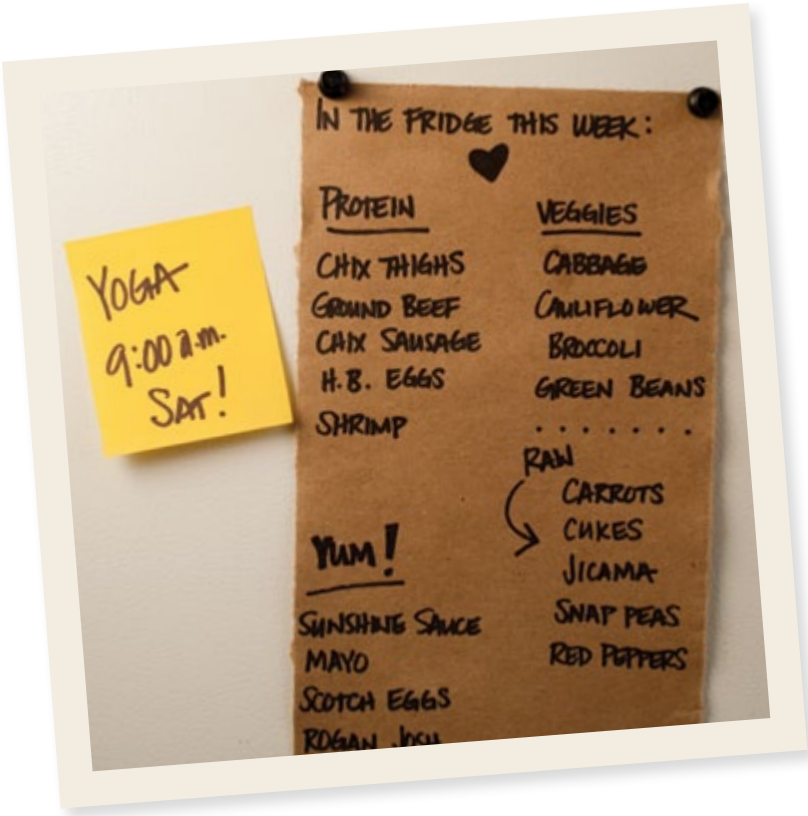 YOGA
9:00 a.m.
SAT!
IN THE FRIDGE THIS WEEK:
PROTEIN
CHIX THIGHS
GROUND BEEF
CHIX SAUSAGE
H.B. EGGS
SHRIMP
YUM!
SUNSHINE SAUCE
MAYO
SCOTCH EGGS
ROGAN JOSH
VEGGIES
CABBAGE
CAULIFLOWER
BROCCOLI
GREEN BEANS
.......
RAW
CARROTS
CUKES
JICAMA
SNAP PEAS
RED PEPPERS